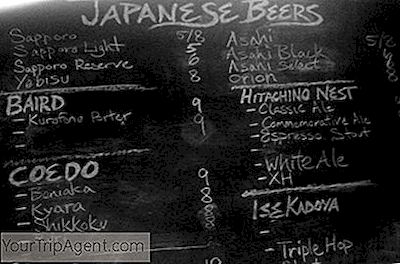 JAPANESE BEERS
Sapporo 5/8
Sapporo Light 5
Sapporo Reserve 6
Yebisu 8
BAIRD 9
- Kurofune Porter 9
-
-
COEDO 9
- Beniaka 8
- Kyara 8
- Shikkoku
Asahi 5/8
Asahi Black
Asahi Select
Orion
HITACHINO NEST
- Classic Ale
- Commemorative Ale
- Espresso Stout
- White Ale
- XH
ISE KADOYA
-
- Triple Hop
YourTripAgent.com